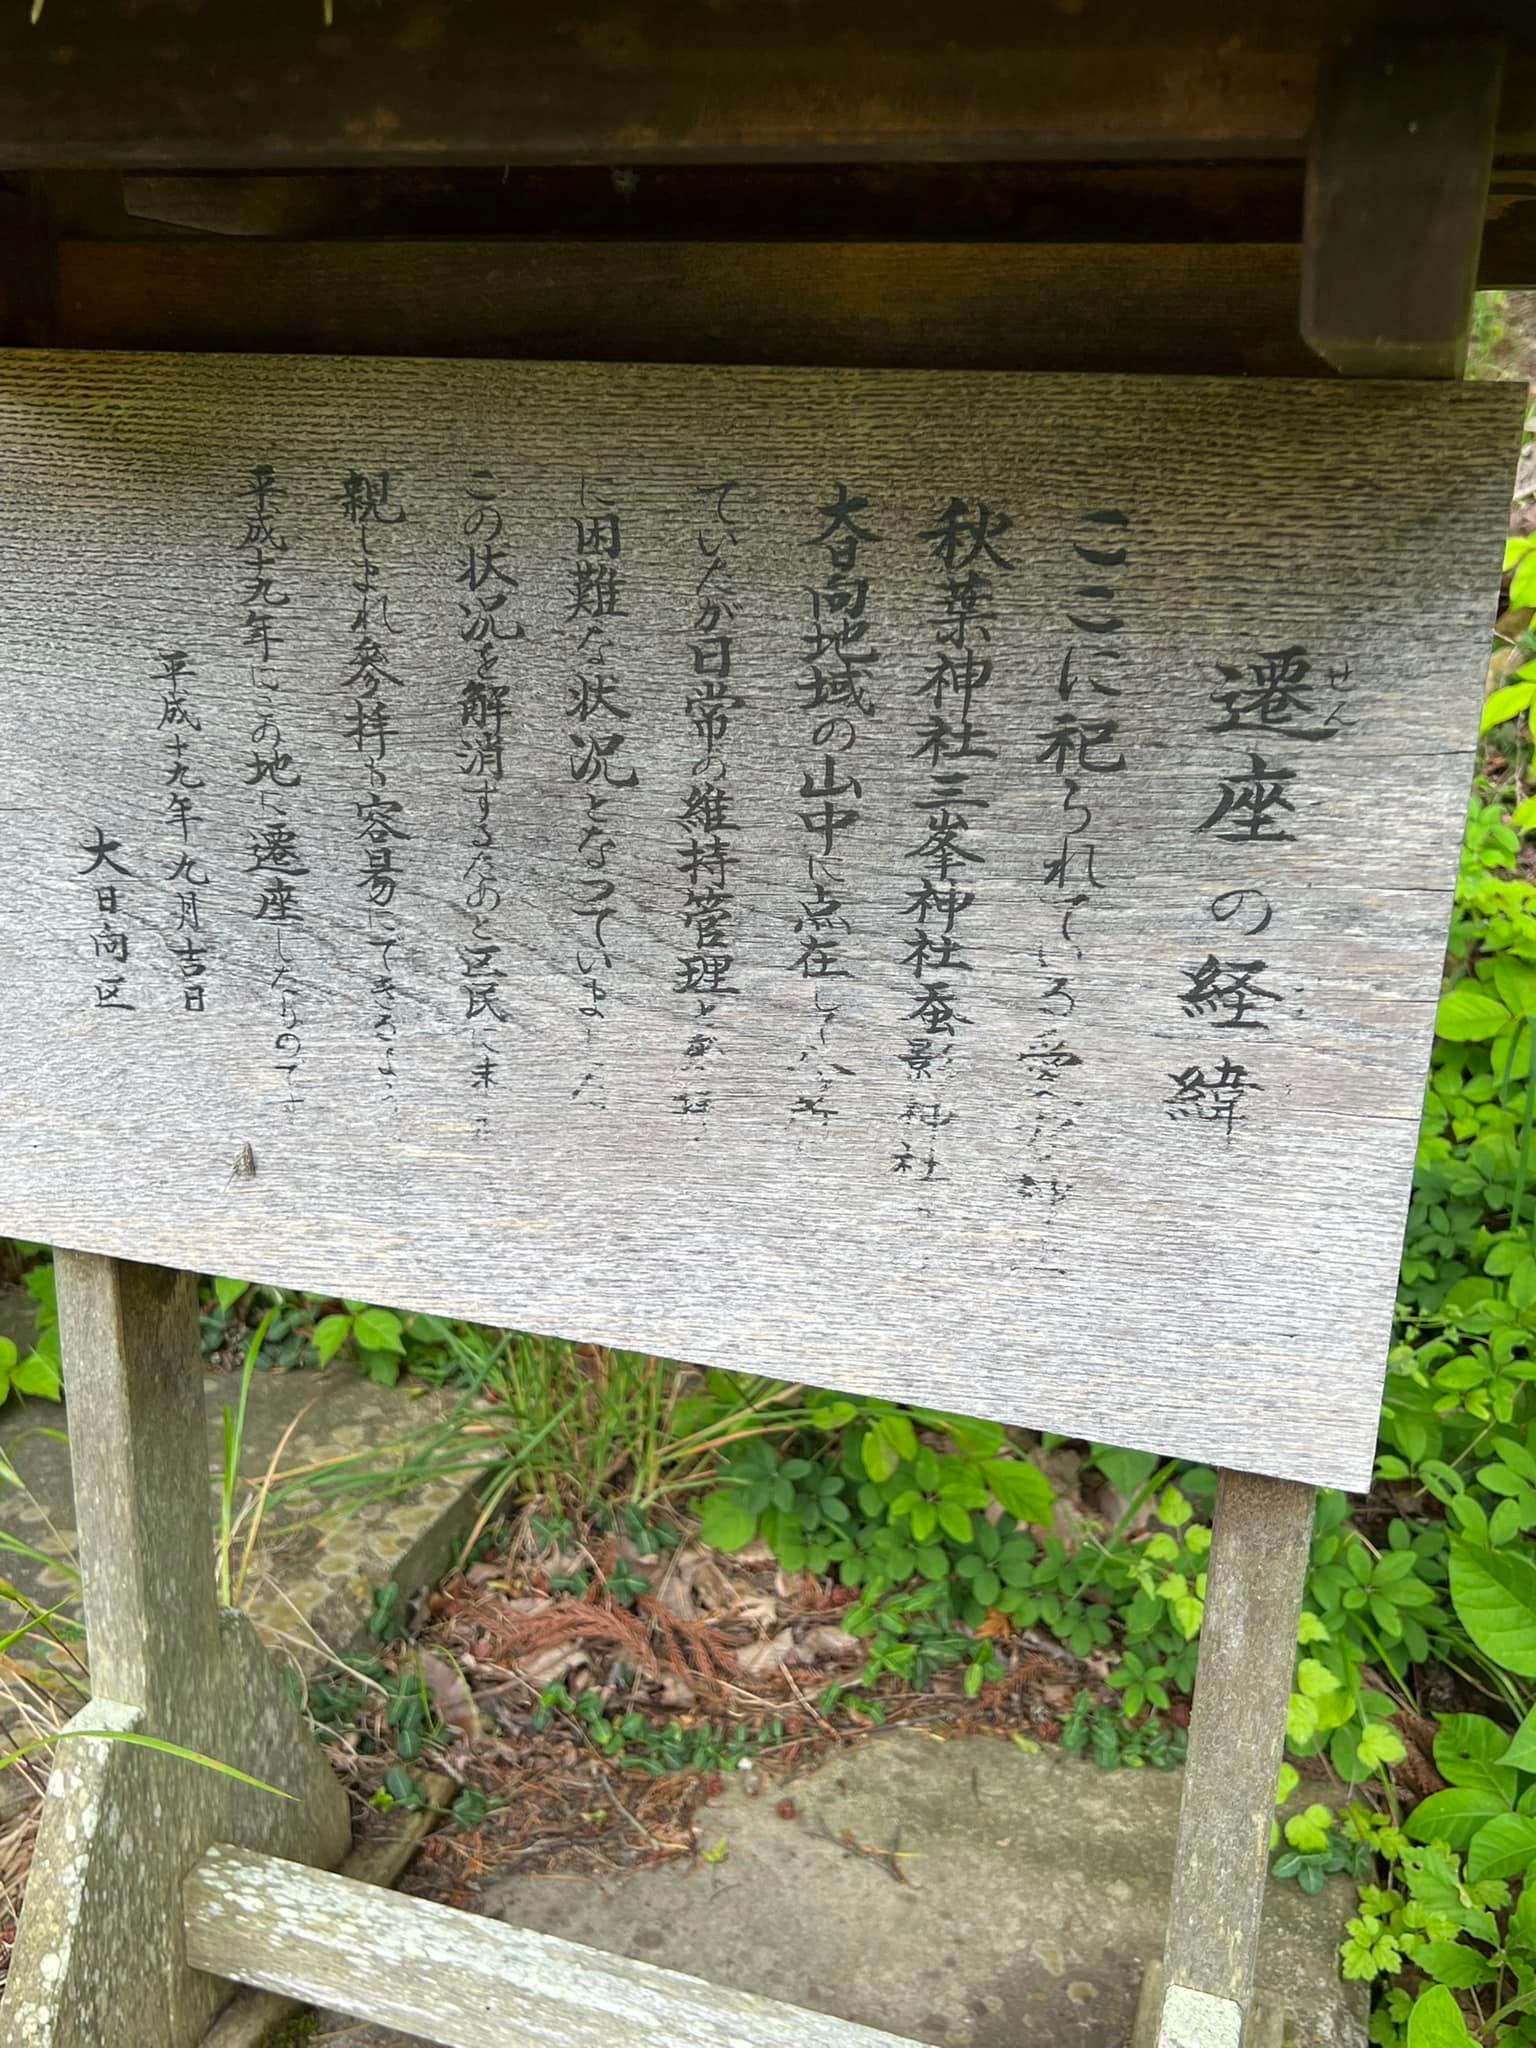 遷座の経緯
せん
ここに祀られている愛
秋葉神社三峯神社蚕影神社
大日向地域の山中に点在し
ていたが日常の維持管理と
に困難な状況となっていました
この状況を解消するためと区民に末
親しまれ参拝も容易にできるよう
平成十九年にこの地に遷座したものです
平成十九年九月吉日
大日向区